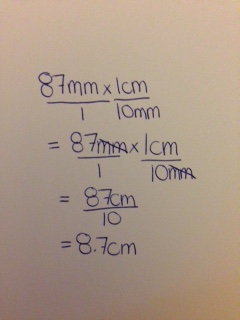 87mm x 1cm
1 10mm
= 87mm x 1cm
1 10mm
= 87cm
10
= 8.7cm